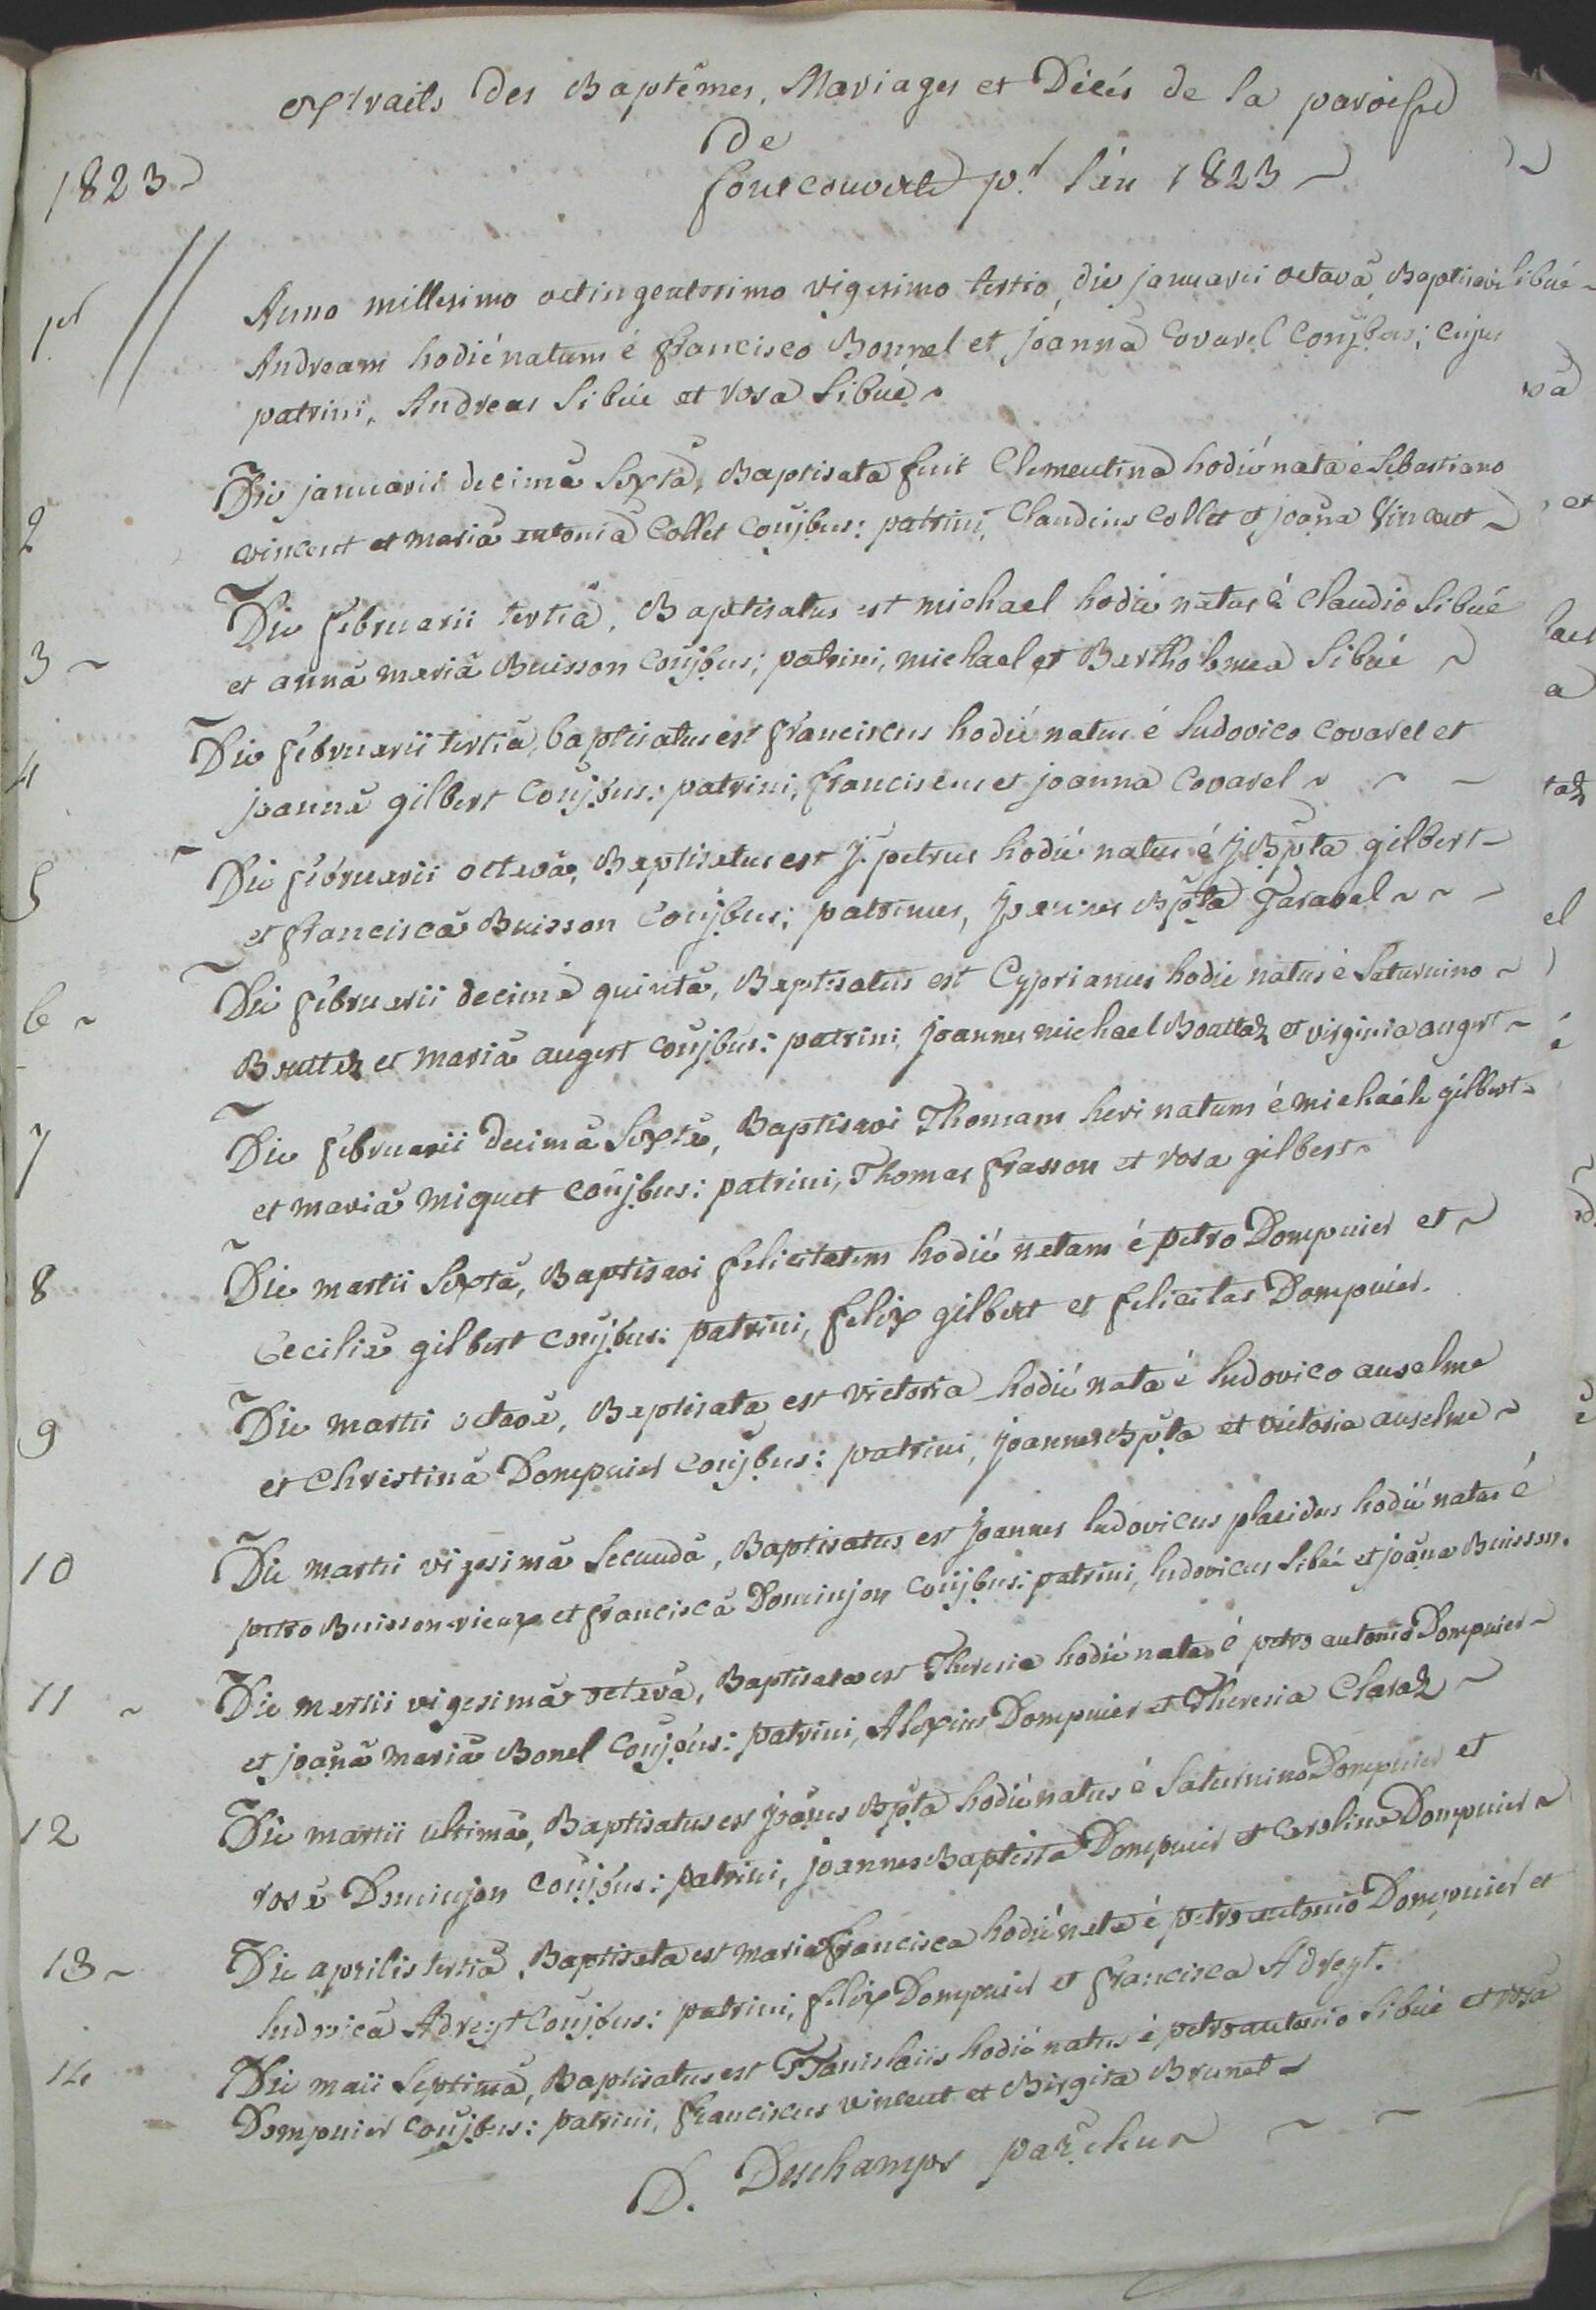 extraits des Baptêmes, Mariages et Décés de la paroisse
de
1823
fontcouverte pr. l'an 1823
1er Anno millesimo octingentesimo vigesimo tertio, die januarii octavâ, Baptisavi
Andream hodiè natum è francisco Bonnel et joannâ Covarel Coñjbus; cujus
patrini, Andreas Sibué et rosa Sibué.
2 Die januarii decimâ Sextâ, Baptisata fuit Clementina hodiè nata è Sebastiano
vincent et mariâ antoniâ Collet Coñjbus: patrini, Claudius Collet et joãna Vincent
3 Die februarii tertiâ, Baptisatus est michael hodiè natus è Claudio Sibué
et annâ mariâ Buisson Coñjbus; patrini, michael et Bartholomea Sibué
4 Die februarii tertiâ, baptisatus est franciscus hodiè natus è ludovico covarel et
joannâ gilbert Coñjbus: patrini, franciscus et joanna Covarel
5 Die februarii octavâ, Baptisatus est j. petrus hodiè natus è j Bpta gilbert
et franciscâ Buisson Coñjbus; patrinus, joannes Bpta Taravel
6 Die februarii decimâ quintâ, Baptisatus est Cyprianus hodie natus è Saturnino
Bouttaz et mariâ augert coñjbus: patrini, joannes michael Bouttaz et virginia augert
7 Die februarii decimâ Sextâ, Baptisavi Thomam heri natum è michaële gilbert
et mariâ miquet coñjbus: patrini, Thomas frasson et rosa gilbert
8 Die martii Sextâ, Baptisavi felicitatem hodiè natam è petro Dompnier et
Ceciliâ gilbert coñjbus: patrini, felix gilbert et felicitas Dompnier.
9 Die martii octavâ, Baptisata est victoria hodiè nata è ludovico anselme
et Christinâ Dompnier coñjbus: patrini, joannes Bpta et victoria anselme
10 Die martii vigesimâ Secundâ, Baptisatus est joannes ludovicus placidus hodiè natus è
petro Buisson-vieux et franciscâ Dominjon coñjbus: patrini, ludovicus Sibué et joãna Buisson.
11 Die martii vigesimâ octavâ, Baptisata est Theresia hodiè nata è petro antonio Dompnier
et joãnâ mariâ Bonel Coñjbus: patrini, Alexius Dompnier et Theresia Claraz
12 Die martii ultimâ, Baptisatus est joãnes Bpta hodiè natus è Saturnino Dompnier et
rosâ Dominjon Coñjbus: patrini, joannes Baptista Dompnier et Carolina Dompnier
13 Die aprilis tertiâ, Baptisata est maria francisca hodiè nata è petro antonio Dompnier et
ludovicâ Adreyt Coñjbus: patrini, felix Dompnier et francisca Adreyt.
14 Die maii Septimâ, Baptisatus est Stanislaüs hodiè natus è petro antonio Sibué et rosâ
Dompnier coñjbus: patrini, franciscus vincent et Birgita Brunet
D. Deschamps parochus